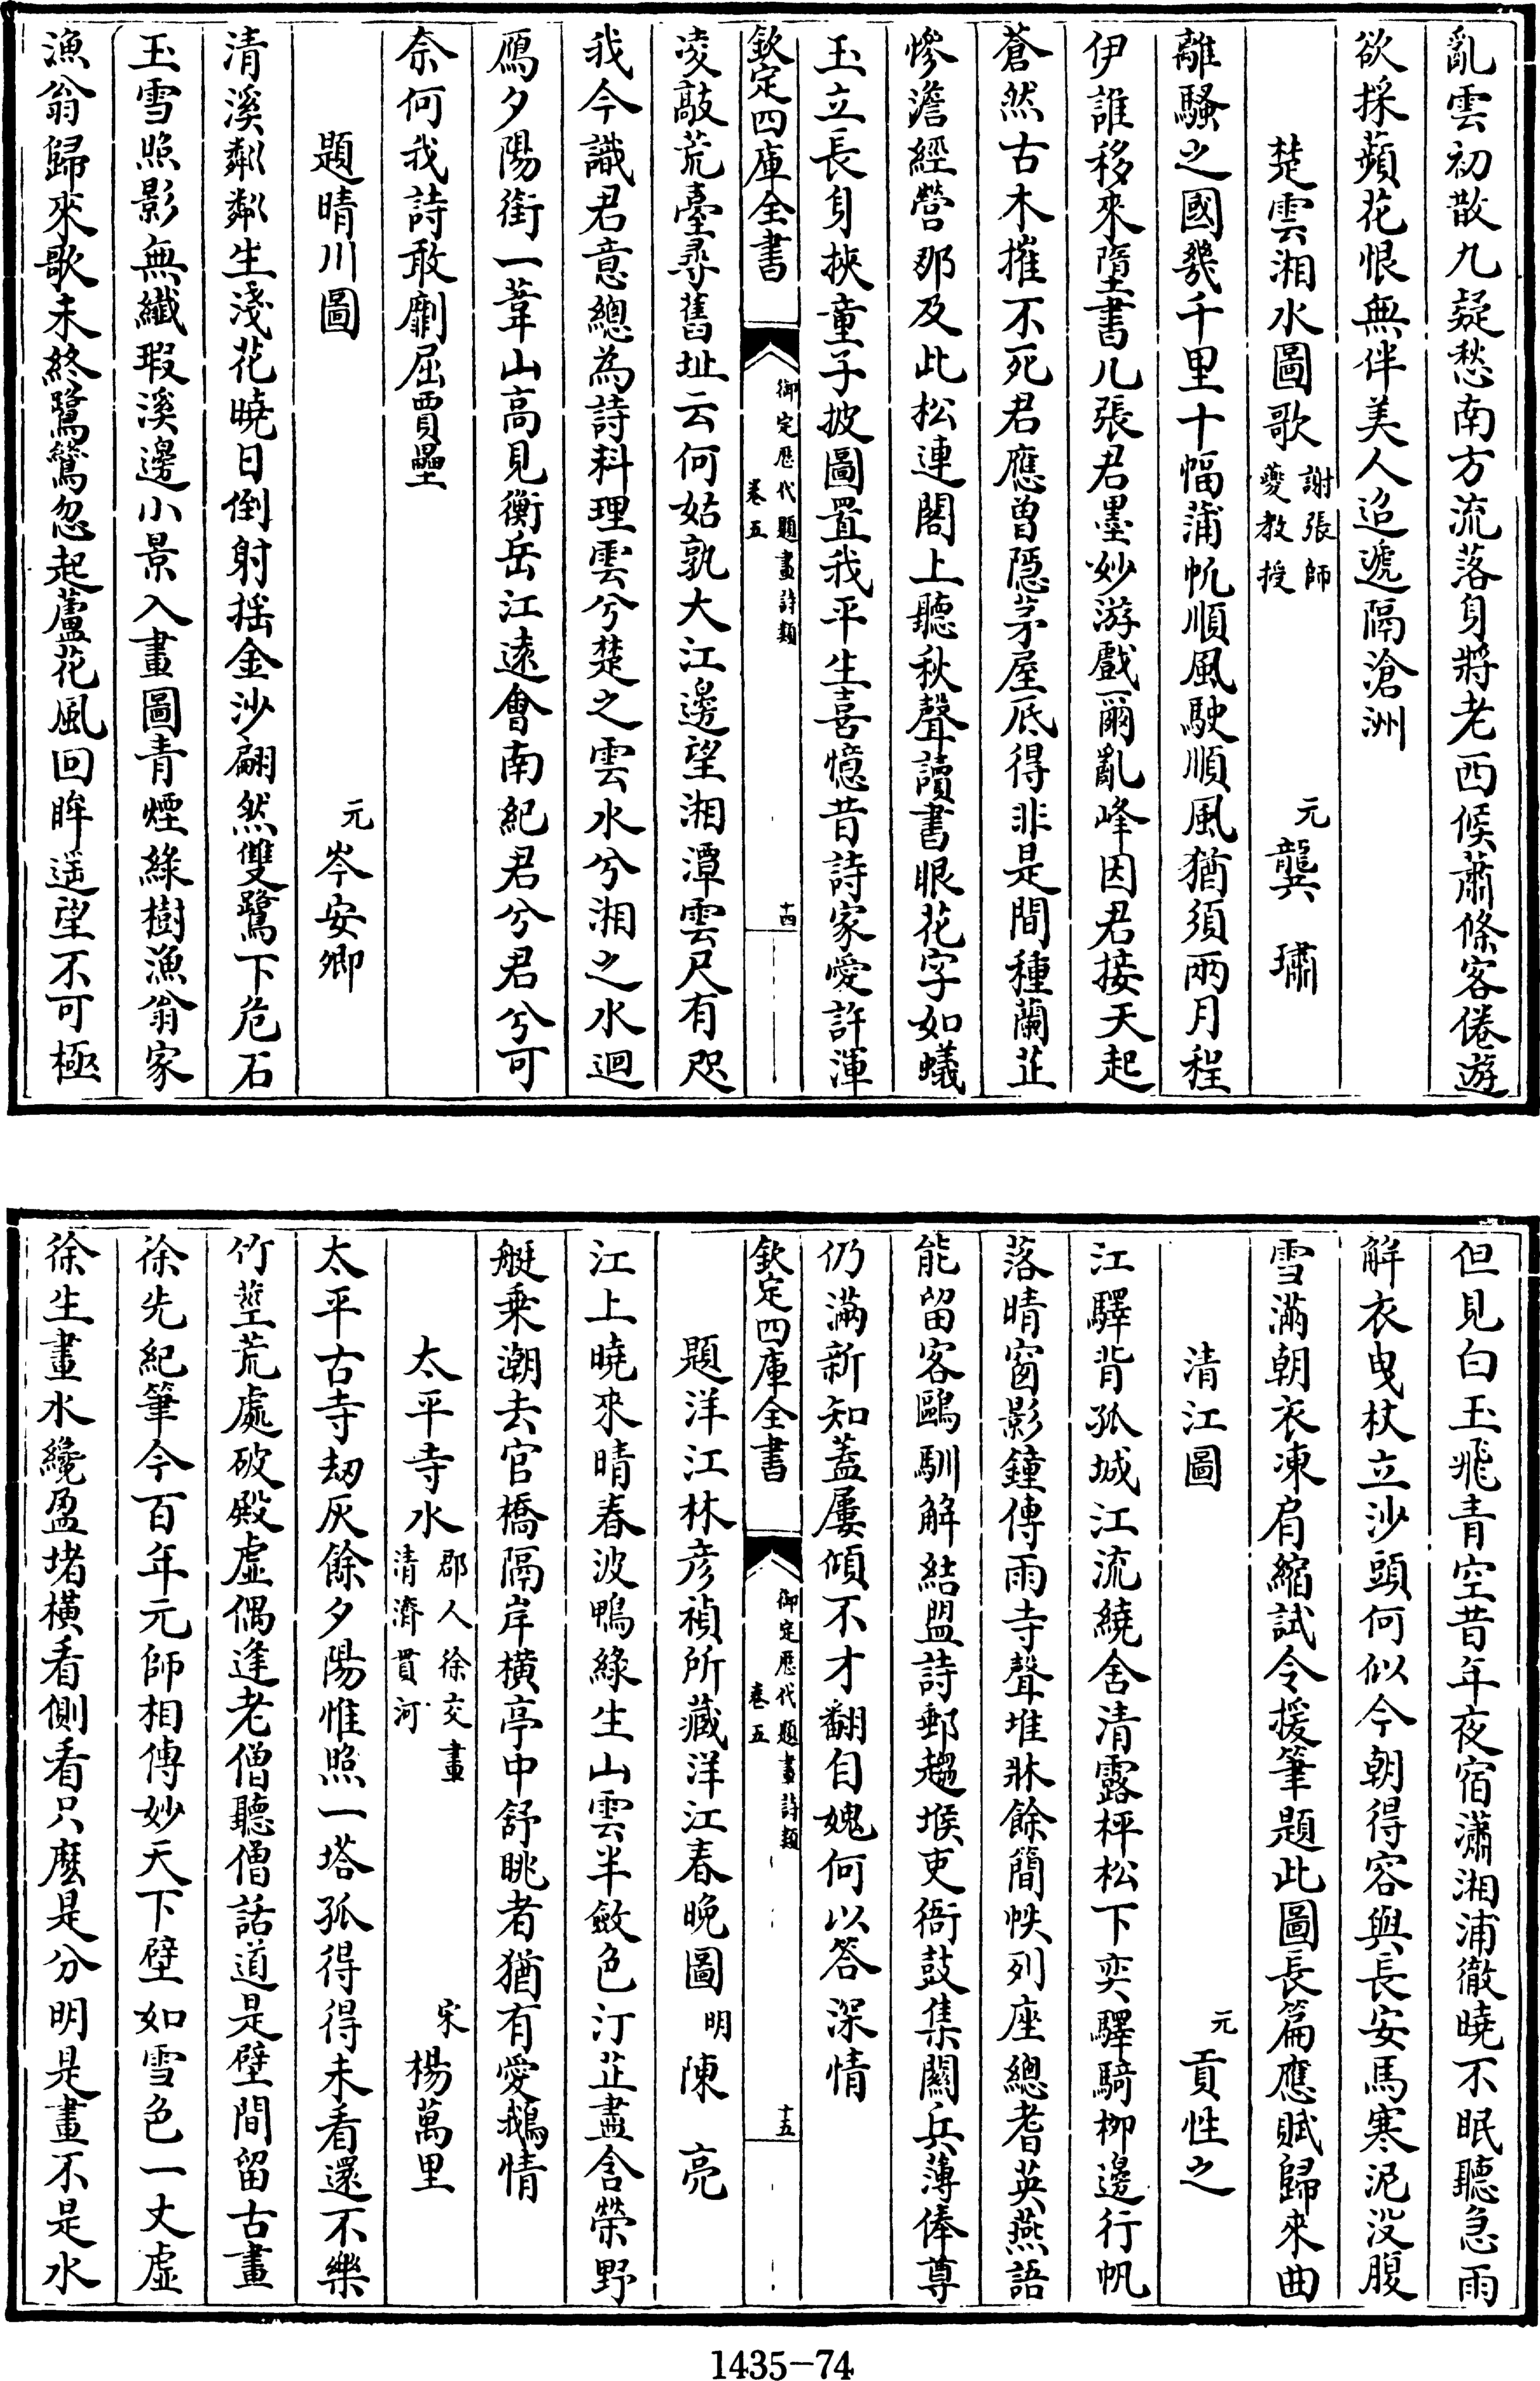 亂雲初散九疑愁南方流落身將老西候蕭條客倦遊
欲採蘋花恨無伴美人迢遞隔滄洲
楚雲湘水圖歌謝張師夔教授 元龔璛
離騷之國幾千里十幅蒲帆順風駛順風猶須兩月程
伊誰移來墮書几張君墨妙游戲爾亂峰因君接天起
蒼然古木摧不死君應曽隠茅屋底得非是間種蘭芷
慘澹經營那及此松連閣上聽秋聲讀書眼花字如蟻
玉立長身挾童子披圖置我平生喜憶昔詩家愛許渾
欽定四庫全書 御定歴代題畫詩類 卷五 十四
凌敲荒臺尋舊址云何姑孰大江邊望湘潭雲尺有咫
我今識君意總為詩料理雲兮楚之雲水兮湘之水迴
鴈夕陽銜一葦山高見衡岳江逺會南紀君兮君兮可
奈何我詩敢劘屈賈壘
題晴川圖 元岑安卿
清溪粼粼生淺花曉日倒射揺金沙翩然雙鷺下危石
玉雪照影無纎瑕溪邊小景入畫圖青煙緑樹漁翁家
漁翁歸來歌未終鷺鷥忽起蘆花風回眸遥望不可極
但見白玉飛青空昔年夜宿瀟湘浦徹曉不眠聽急雨
解衣曳杖立沙頭何似今朝得容與長安馬寒泥沒腹
雪滿朝衣凍肩縮試令援筆題此圖長篇應賦歸來曲
清江圖 元貢性之
江驛背孤城江流繞舍清露枰松下奕驛騎柳邊行帆
落晴窗影鐘傳雨寺聲堆牀餘簡帙列座總耆英燕語
能留客鷗馴解結盟詩郵趨堠吏衙鼓集闗兵薄俸尊
仍滿新知蓋屢傾不才翻自媿何以答深情
欽定四庫全書 御定歴代題畫詩類 卷五 十五
題洋江林彦禎所藏洋江春晚圖 明陳亮
江上曉來晴春波鴨緑生山雲半斂色汀芷盡含榮野
艇乗潮去官橋隔岸橫亭中舒眺者猶有愛鵝情
太平寺水郡人徐交畫清濟貫河 宋楊萬里
太平古寺刼灰餘夕陽惟照一塔孤得得未看還不樂
竹莖荒處破殿虚偶逢老僧聽僧話道是壁間留古畫
徐先紀筆今百年元師相傳妙天下壁如雪色一丈虚
徐生畫水纔盈堵橫看側看只麽是分明是畫不是水
1435-74